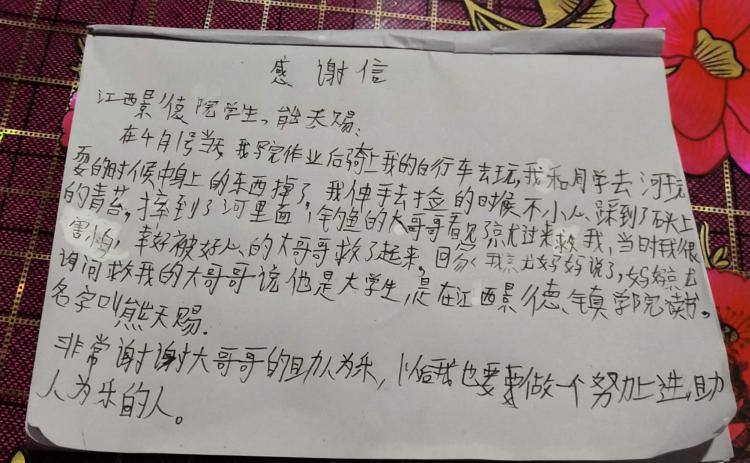 感谢信
江西景德院学生、能天赐:
在4月1号当天,我写完作业后骑上我的自行车去玩,我和同学去河玩
耍的时候中身上的东西掉了,我伸手去捡的时候不小心踩到了石头上
的青苔,摔到了河里面,钓鱼的大哥哥看见了就过来救我,当时我很
害怕,幸好被好心的大哥哥救了起来。回家我就与妈妈说了,妈妈就去
询问救我的大哥哥说他是大学生,是在江西景德镇学院读书。
名字叫熊天赐.
非常谢谢大哥哥的助人为乐,以后我也要做一个努力上进,助
人为乐的人。